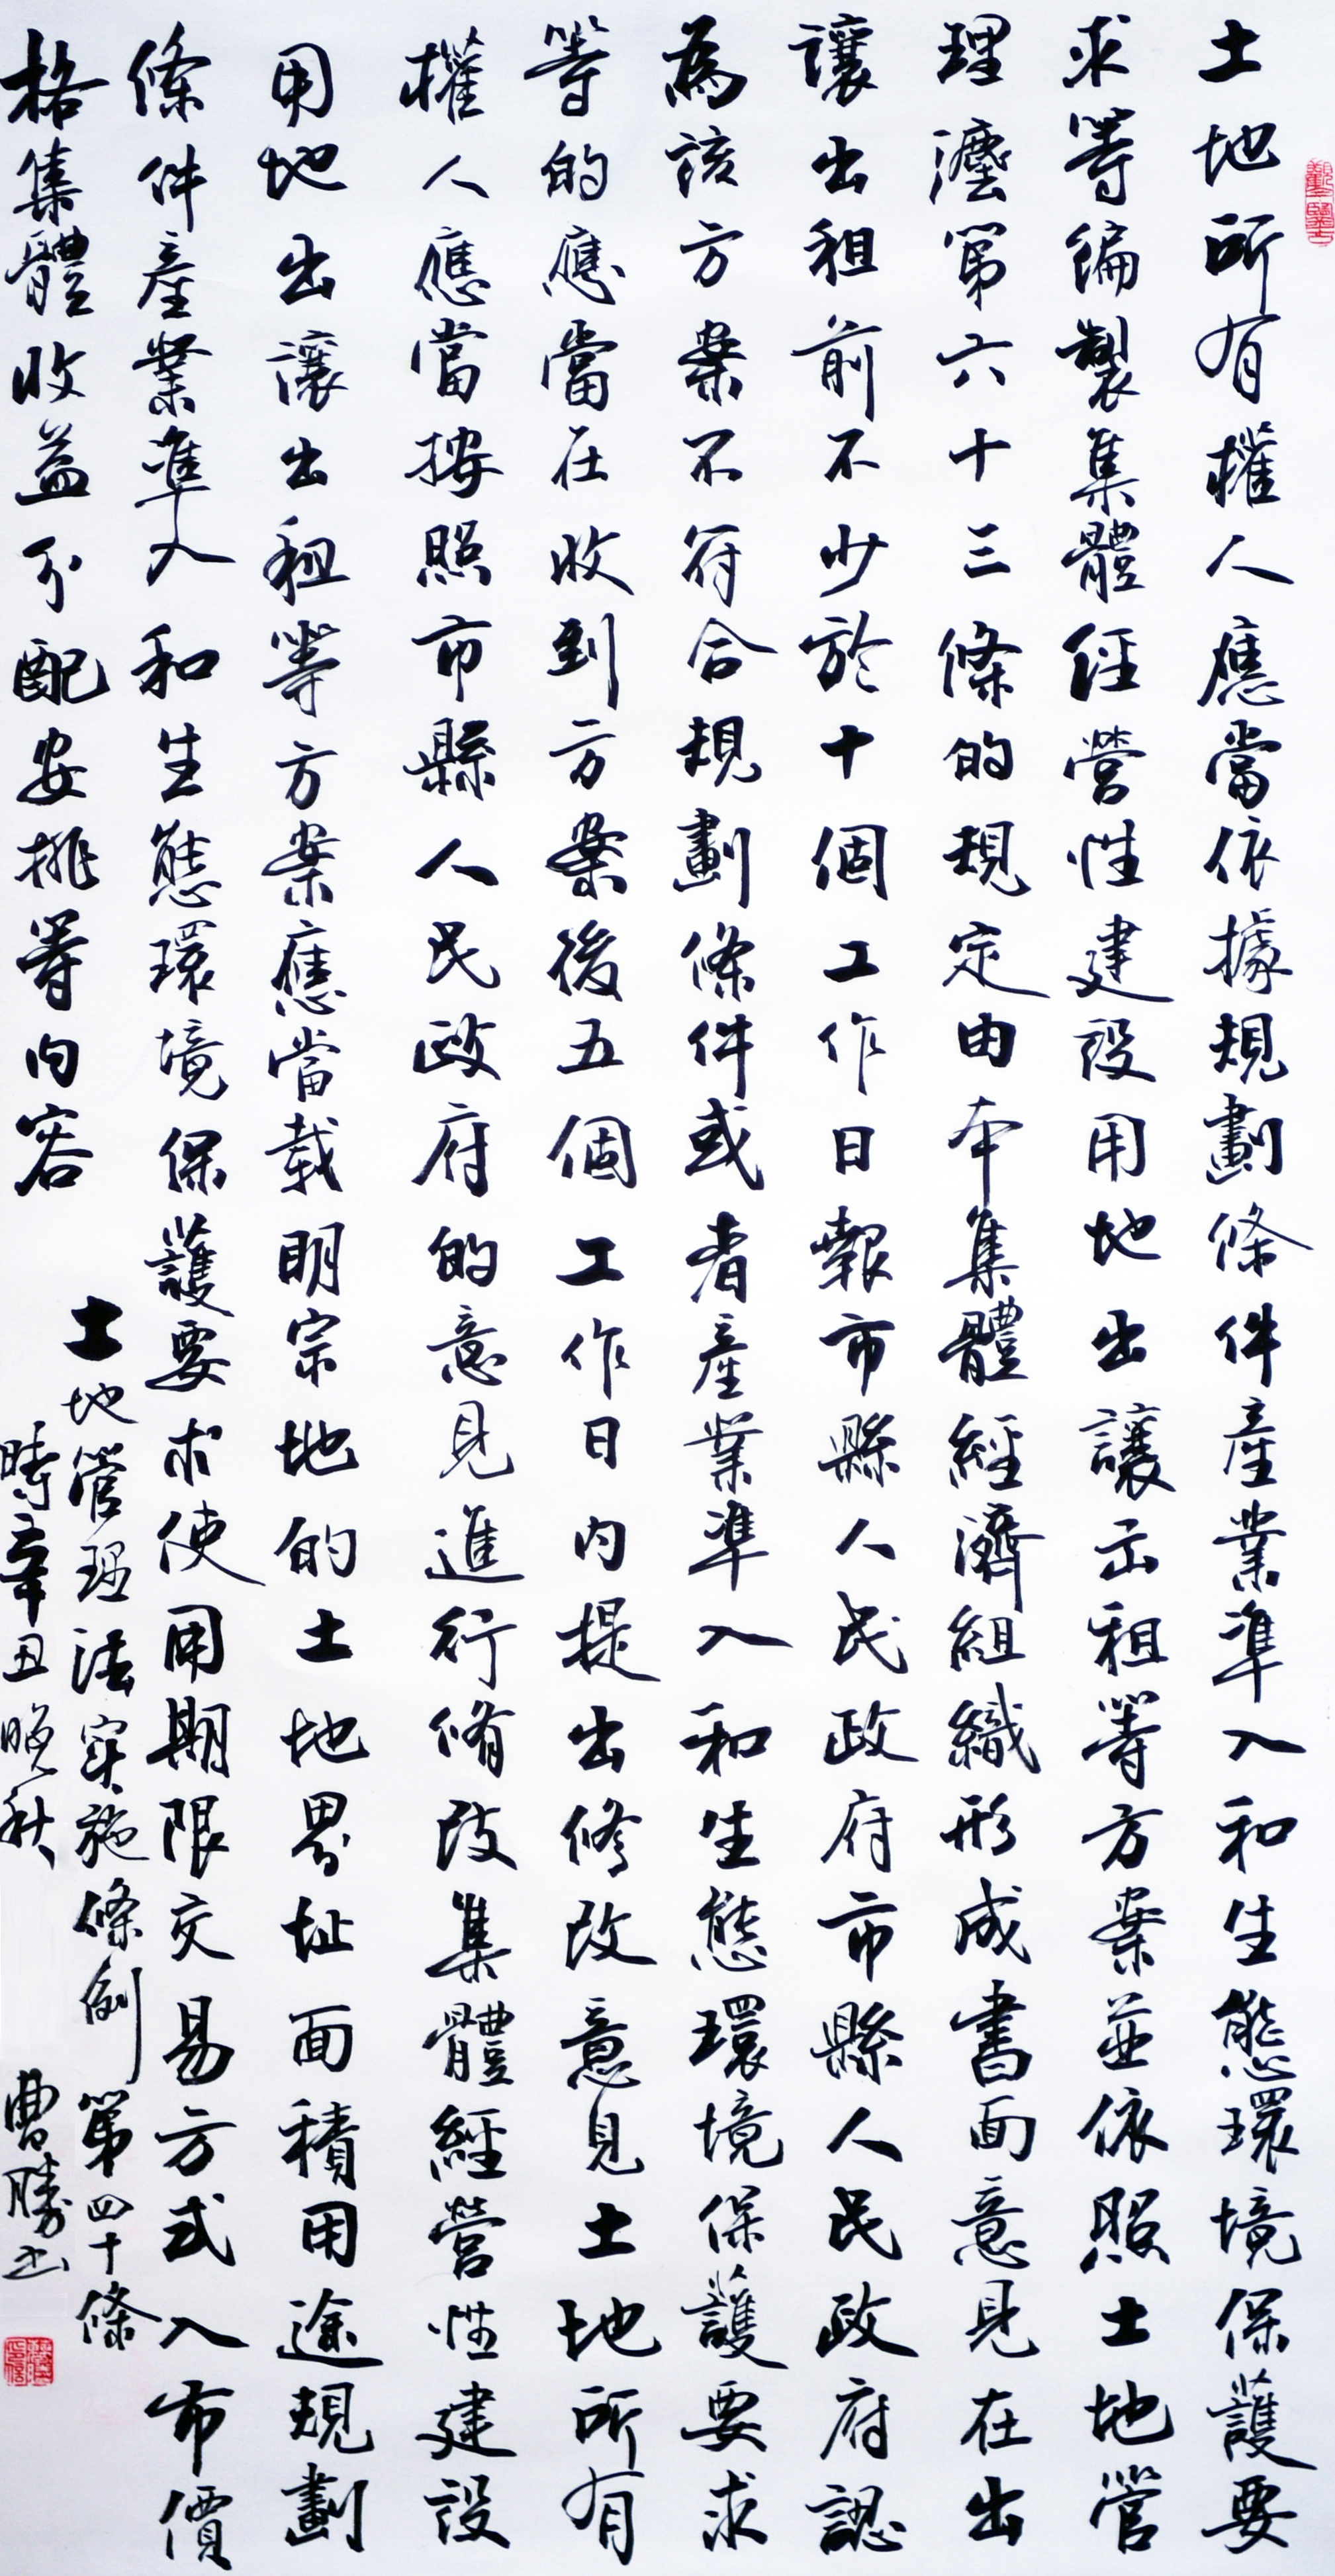 土地所有權人應當依據規劃條件產業準入和生態環境保護要
求等編製集體經營性建設用地出讓出租等方案並依照土地管
理灋第六十三條的規定由本集體經濟組織形成書面意見在出
讓出租前不少於十個工作日報市縣人民政府市縣人民政府認
為該方案不符合規劃條件或者產業準入和生態環境保護要求
等的應當在收到方案後五個工作日內提出修改意見土地所有
權人應當按照市縣人民政府的意見進行脩改集體經營性建設
用地出讓出租等方案應當載明宗地的土地界址面積用途規劃
條件產業準入和生態環境保護要求使用期限交易方式入市價
格集體收益分配安排等內容
土地管理法實施條例第四十條
時辛丑晚秋 曹勝書